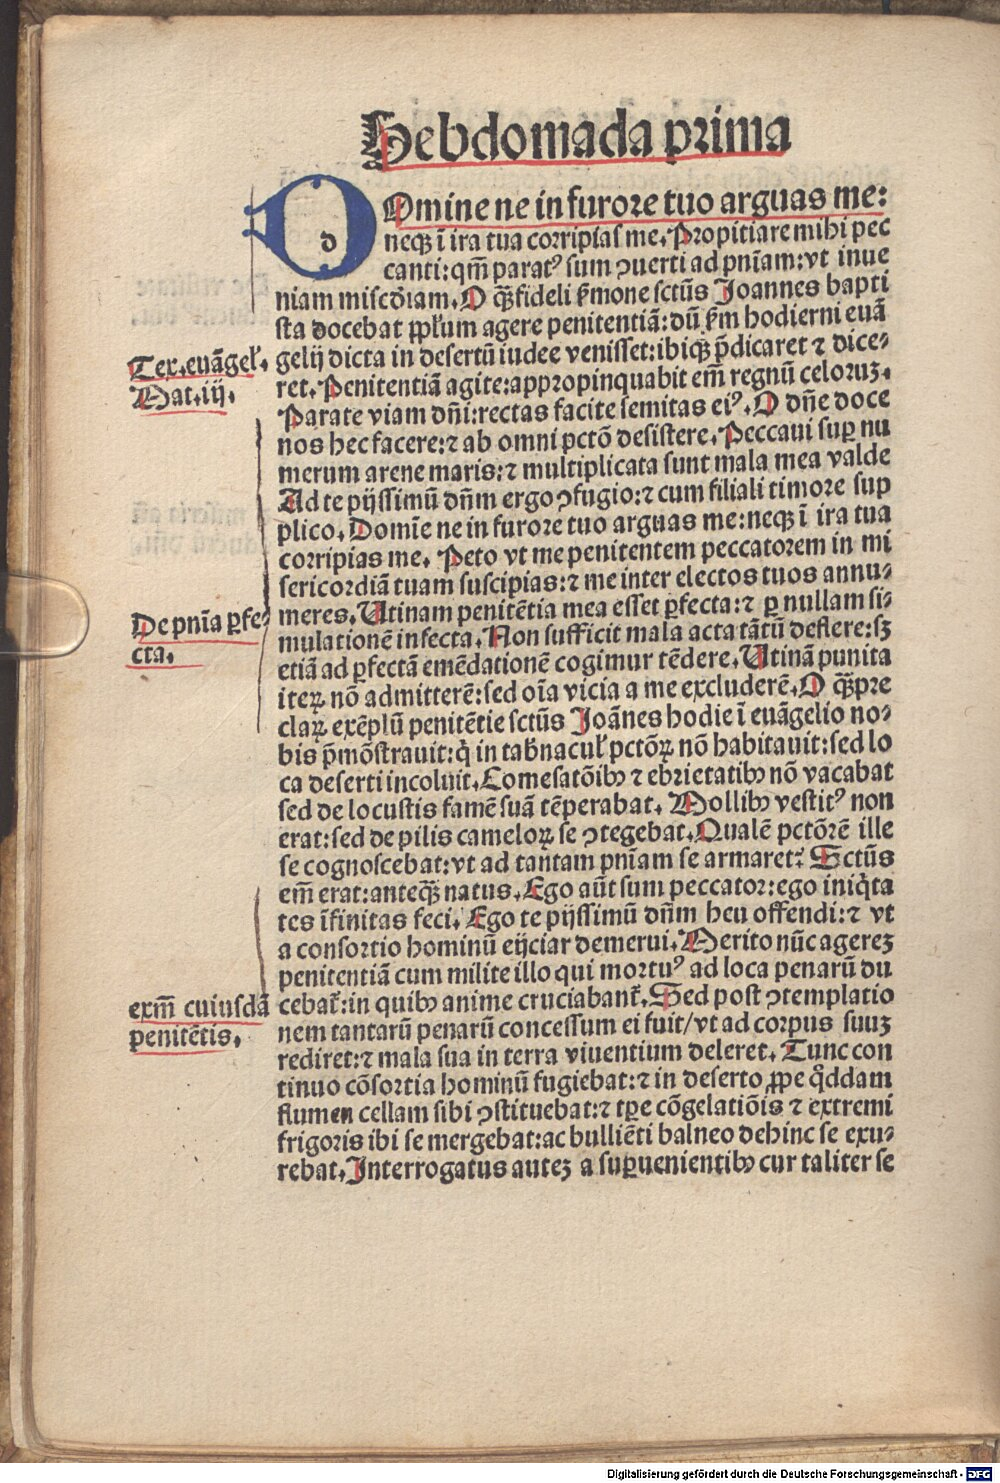 Hebdomada prima
DOmine ne in furore tuo arguas me:
neqȝ ī ira tua corripias me. Propitiare mihi pec
canti: qm̄ paratꝰ sum ꝯuerti ad pnīam: vt inue
niam miscd̄iam. O qȝ̄ fideli s̄mone sctūs Joannes bapti
sta docebat ppl̄um agere penitentiā: dū s̄m hodierni euā
gelij dicta in desertū iudee venisset: ibiqȝ p̄dicaret ⁊ dice⸗
ret. Penitentiā agite: appropinquabit em̄ regnū celoruȝ.
Parate viam dn̄i: rectas facite semitas eiꝰ. O dn̄e doce
nos hec facere: ⁊ ab omni pctō desistere. Peccaui suꝑ nu
merum arene maris: ⁊ multiplicata sunt mala mea valde
Ad te pijssimū dn̄m ergo ꝯfugio: ⁊ cum filiali timore sup
plico. Domīe ne in furore tuo arguas me: neqȝ ī ira tua
corripias me. Peto vt me penitentem peccatorem in mi
sericordiā tuam suscipias: ⁊ me inter electos tuos annu⸗
meres. Utinam penitētia mea esset ꝑfecta: ⁊ ꝑ nullam si⸗
mulationē infecta. Non sufficit mala acta tātū deflere: sȝ
etiā ad ꝑfectā emēdationē cogimur tēdere. Utinā punita
iteꝝ nō admitterē: sed oīa vicia a me excluderē. O qȝ̄ pre
claꝝ exēplū penitētie sctūs Joānes hodie ī euāgelio no⸗
bis p̄mōstrauit: q̇ in tab̄nacul̕ pctōꝝ nō habitauit: sed lo
ca deserti incoluit. Comesatōibꝰ ⁊ ebrietatibꝰ nō vacabat
sed de locustis famē suā tēperabat. Mollibꝰ vestitꝰ non
erat: sed de pilis cameloꝝ se ꝯtegebat. Qualē pctōrē ille
se cognoscebat: vt ad tantam pnīam se armaret? Sctūs
em̄ erat: anteqȝ̄ natus. Ego aūt sum peccator: ego iniq̇ta
tes īfinitas feci. Ego te pijssimū dn̄m heu offendi: ⁊ vt
a consortio hominū eijciar demerui. Merito nūc agereȝ
penitentiā cum milite illo qui mortuꝰ ad loca penarū du
cebat̕: in quibꝰ anime cruciabant̕. Sed post ꝯtemplatio
nem tantarū penarū concessum ei fuit/ vt ad corpus suuȝ
rediret: ⁊ mala sua in terra viuentium deleret. Tunc con
tinuo cōsortia hominū fugiebat: ⁊ in deserto ꝓpe q̊ddam
flumen cellam sibi ꝯstituebat: ⁊ tꝑe cōgelatiōis ⁊ extremi
frigoris ibi se mergebat: ac bulliēti balneo dehinc se exu⸗
rebat. Interrogatus auteȝ a suꝑuenientibꝰ cur taliter se
Tex. euāgel̕.
Mat. iij.
De pnīa ꝑfe⸗
cta.
exm̄ cuiusdā
penitētis.
Digitalisierung gefördert durch die Deutsche Forschungsgemeinschaft - DFG